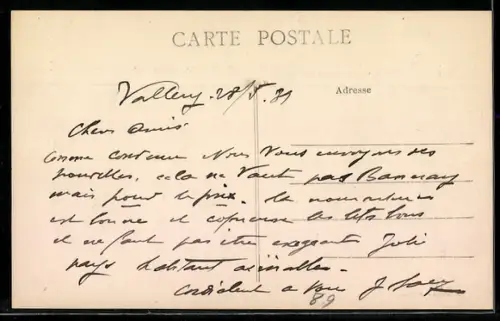 CARTE POSTALE
Adresse
Vallery 28/5.31
Chers Amis
Comme convenu Nous Vous envoyons des
nouvelles, cela ne Vaut pas Bannay
mais pour le prix. la nourriture
est bonne et copieuse les lits bons
il ne faut pas être exigeants Joli
pays habitant aimables.
Cordialement a vous J
89